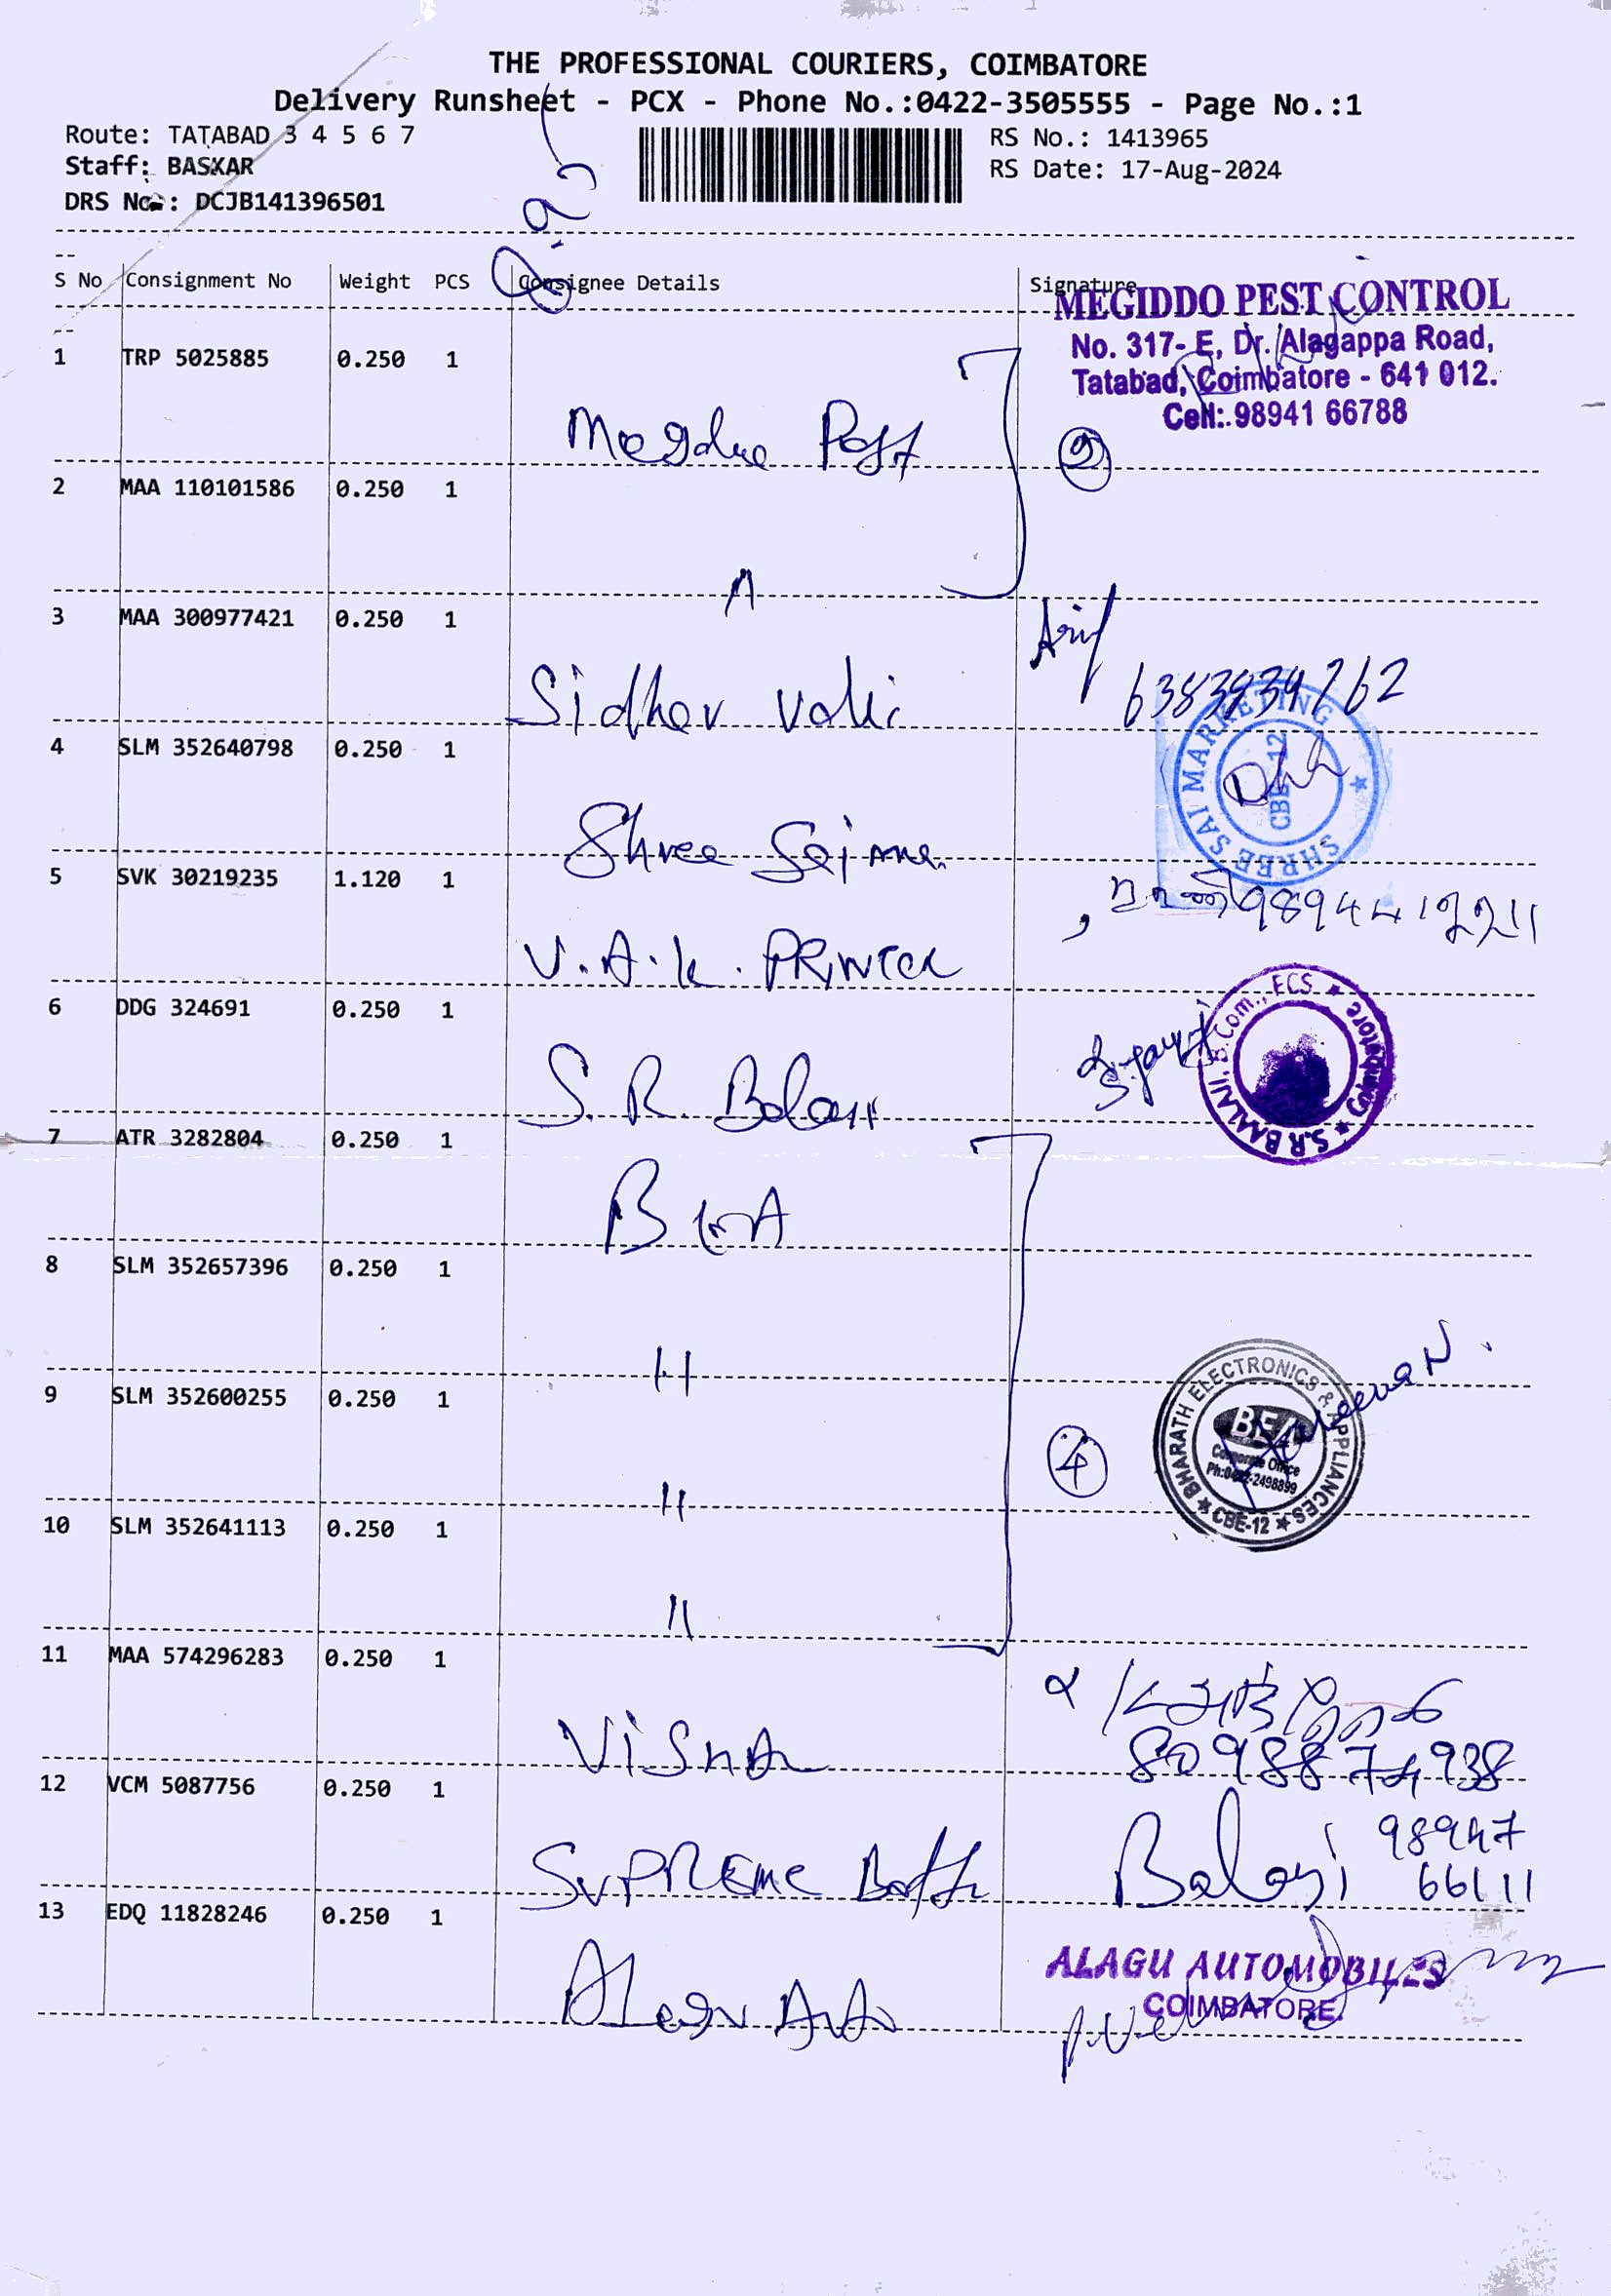 THE PROFESSIONAL COURIERS, COIMBATORE
Delivery Runsheet - PCX - Phone No.:0422-3505555 - Page No.:1
Route: TATABAD 3 4 5 6 7
RS No.: 1413965
Staff: BASKAR
RS Date: 17-Aug-2024
DRS No.: DCJB141396501
S No Consignment No Weight PCS Consignee Details Signature
MEGIDDO PEST CONTROL
No. 317- E, Dr. Alagappa Road,
Tatabad, Coimbatore - 641 012.
Cell: 98941 66788
1 TRP 5025885 0.250 1
2
2 MAA 110101586 0.250 1
3 MAA 300977421 0.250 1
Sidhar
SHREE SAI MARKETING
CBE-12
4 SLM 352640798 0.250 1
Shree
5 SVK 30219235 1.120 1
9894412211
V.A.K.
6 DDG 324691 0.250 1
S.R BAALAJI, B.Com., FCS
Coimbatore
S.R.
7 ATR 3282804 0.250 1
8 SLM 352657396 0.250 1
9 SLM 352600255 0.250 1
BHARATH ELECTRONICS & APPLIANCES
BEA
Corporate Office
Ph:0422-2498899
CBE-12
4
10 SLM 352641113 0.250 1
11 MAA 574296283 0.250 1
8098874938
12 VCM 5087756 0.250 1
SUPREME
Balaji 98947
66111
13 EDQ 11828246 0.250 1
ALAGU AUTOMOBILES
COIMBATORE.